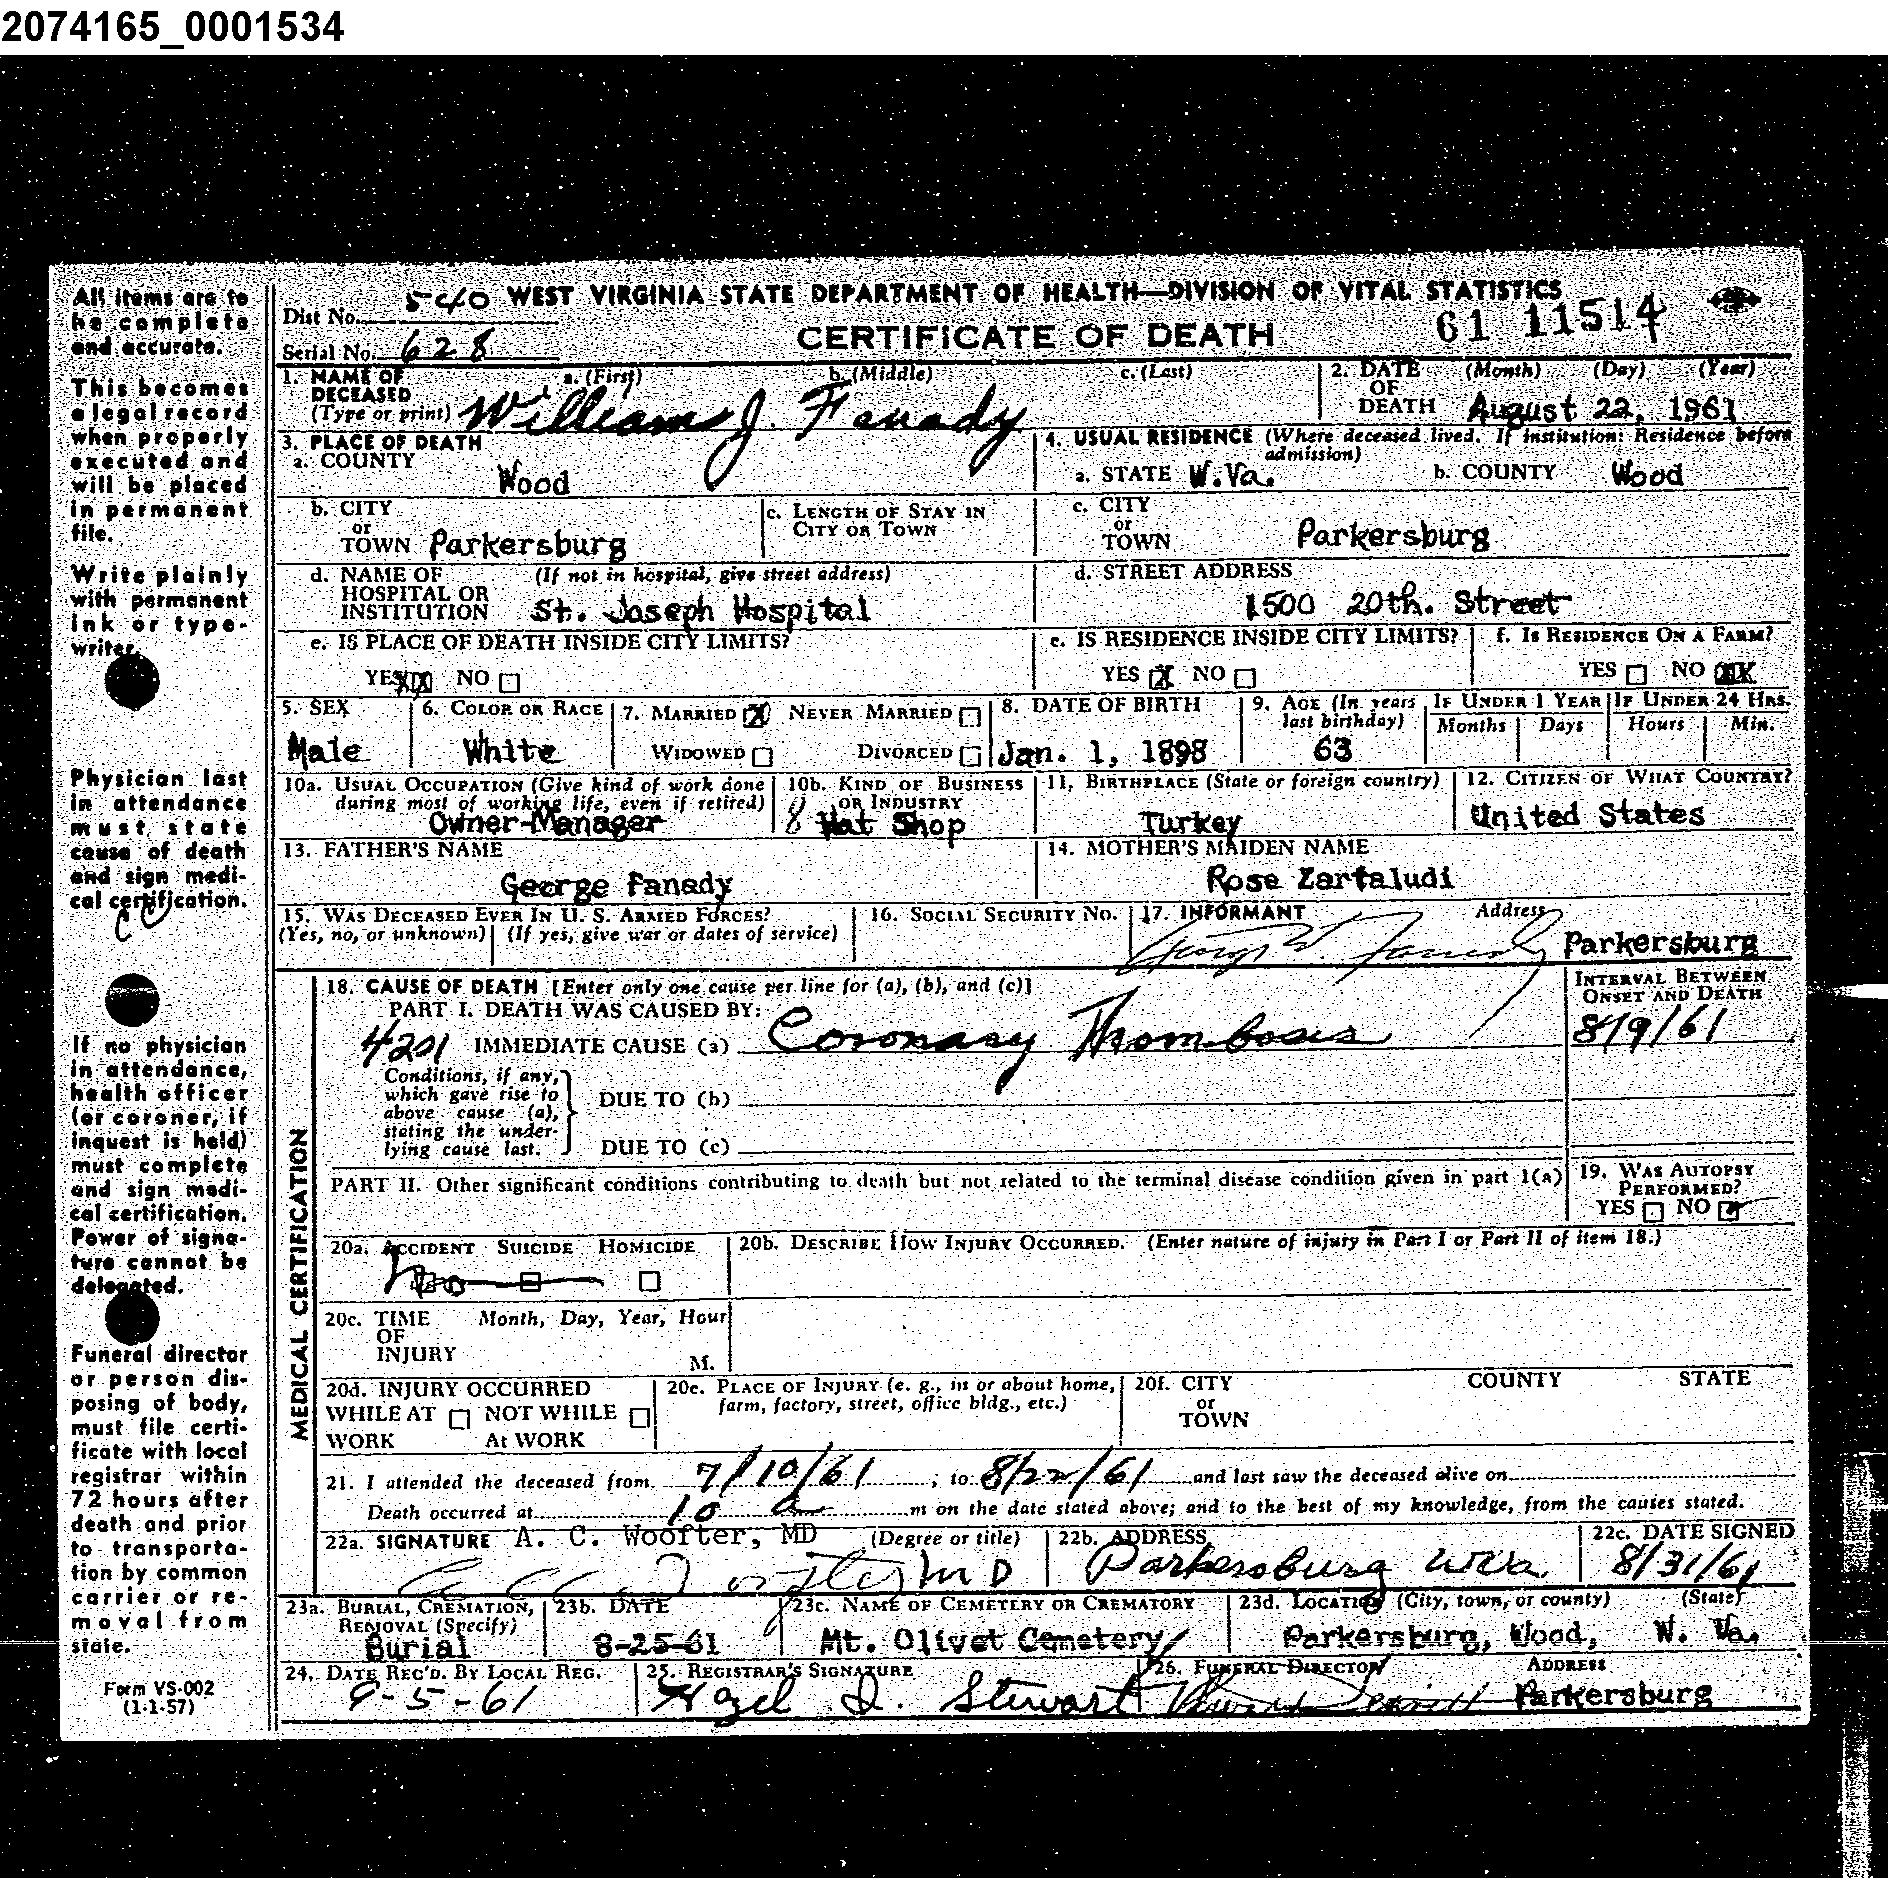 2074165_0001534
All items are to
be complete
and accurate.
This becomes
a legal record
when properly
executed and
will be placed
in permanent
file.
Write plainly
with permanent
ink or type-
writer.
Physician last
in attendance
must state
cause of death
and sign medi-
cal certification.
If no physician
in attendance,
health officer
(or coroner, if
inquest is held)
must complete
and sign medi-
cal certification.
Power of signa-
ture cannot be
delegated.
Funeral director
or person dis-
posing of body,
must file certi-
ficate with local
registrar within
72 hours after
death and prior
to transporta-
tion by common
carrier or re-
moval from
state.
Form VS-002
(1-1-57)
Dist No. 540 WEST VIRGINIA STATE DEPARTMENT OF HEALTH—DIVISION OF VITAL STATISTICS
Serial No. 628 CERTIFICATE OF DEATH 61 11514
1. NAME OF DECEASED (Type or print) a. (First) b. (Middle) c. (Last) William J. Fanady
2. DATE OF DEATH (Month) (Day) (Year) August 22, 1961
3. PLACE OF DEATH
a. COUNTY Wood
4. USUAL RESIDENCE (Where deceased lived. If institution: Residence before admission)
a. STATE W.Va. b. COUNTY Wood
b. CITY or TOWN Parkersburg
c. LENGTH OF STAY IN CITY OR TOWN
c. CITY or TOWN Parkersburg
d. NAME OF HOSPITAL OR INSTITUTION (If not in hospital, give street address) St. Joseph Hospital
d. STREET ADDRESS 1500 20th. Street
e. IS PLACE OF DEATH INSIDE CITY LIMITS? YES XX NO
e. IS RESIDENCE INSIDE CITY LIMITS? YES X NO
f. IS RESIDENCE ON A FARM? YES NO XX
5. SEX Male
6. COLOR OR RACE White
7. MARRIED X NEVER MARRIED
WIDOWED DIVORCED
8. DATE OF BIRTH Jan. 1, 1898
9. AGE (In years last birthday) 63
IF UNDER 1 YEAR Months Days
IF UNDER 24 HRS. Hours Min.
10a. USUAL OCCUPATION (Give kind of work done during most of working life, even if retired) Owner-Manager
10b. KIND OF BUSINESS OR INDUSTRY 8 Hat Shop
11. BIRTHPLACE (State or foreign country) Turkey
12. CITIZEN OF WHAT COUNTRY? United States
13. FATHER'S NAME George Fanady
14. MOTHER'S MAIDEN NAME Rose Zartaludi
15. WAS DECEASED EVER IN U. S. ARMED FORCES?
(Yes, no, or unknown) (If yes, give war or dates of service)
16. SOCIAL SECURITY NO.
17. INFORMANT Address Parkersburg
MEDICAL CERTIFICATION
18. CAUSE OF DEATH [Enter only one cause per line for (a), (b), and (c)]
INTERVAL BETWEEN ONSET AND DEATH
PART I. DEATH WAS CAUSED BY:
4201 IMMEDIATE CAUSE (a) Coronary Thrombosis 8/9/61
Conditions, if any, which gave rise to above cause (a), stating the under-lying cause last.
DUE TO (b)
DUE TO (c)
PART II. Other significant conditions contributing to death but not related to the terminal disease condition given in part 1(a)
19. WAS AUTOPSY PERFORMED? YES NO
20a. ACCIDENT SUICIDE HOMICIDE
no
20b. DESCRIBE HOW INJURY OCCURRED. (Enter nature of injury in Part I or Part II of item 18.)
20c. TIME OF INJURY Month, Day, Year, Hour M.
20d. INJURY OCCURRED
WHILE AT WORK NOT WHILE At WORK
20e. PLACE OF INJURY (e. g., in or about home, farm, factory, street, office bldg., etc.)
20f. CITY or TOWN COUNTY STATE
21. I attended the deceased from 7/10/61, to 8/22/61 and last saw the deceased alive on
Death occurred at 10 a m on the date stated above; and to the best of my knowledge, from the causes stated.
22a. SIGNATURE A. C. Woofter, MD (Degree or title)
A C Woofter MD
22b. ADDRESS Parkersburg W Va
22c. DATE SIGNED 8/31/61
23a. BURIAL, CREMATION, REMOVAL (Specify) Burial
23b. DATE 8-25-61
23c. NAME OF CEMETERY OR CREMATORY Mt. Olivet Cemetery
23d. LOCATION (City, town, or county) (State) Parkersburg, Wood, W. Va.
24. DATE REC'D. BY LOCAL REG. 9-5-61
25. REGISTRAR'S SIGNATURE Hazel D. Stewart
26. FUNERAL DIRECTOR ADDRESS Parkersburg